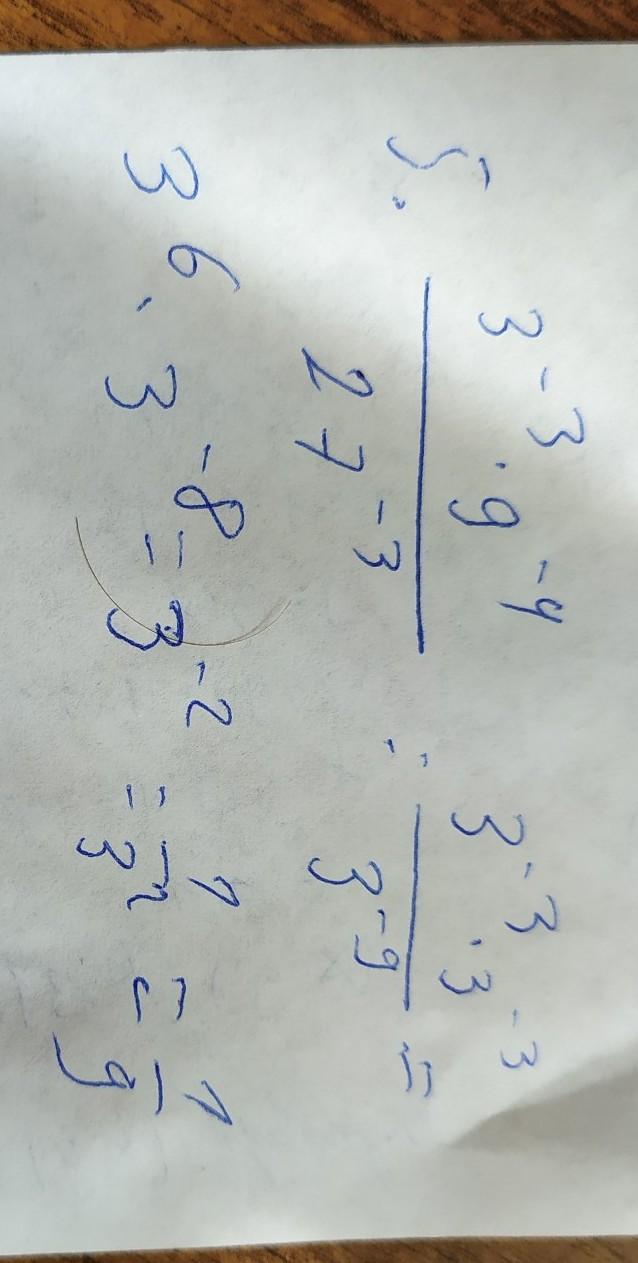 5. 3^-3 · 9^-4 / 27^-3 = 3^-3 · 3^-3 / 3^-9 =
3^6 · 3^-8 = 3^-2 = 1/3^2 = 1/9